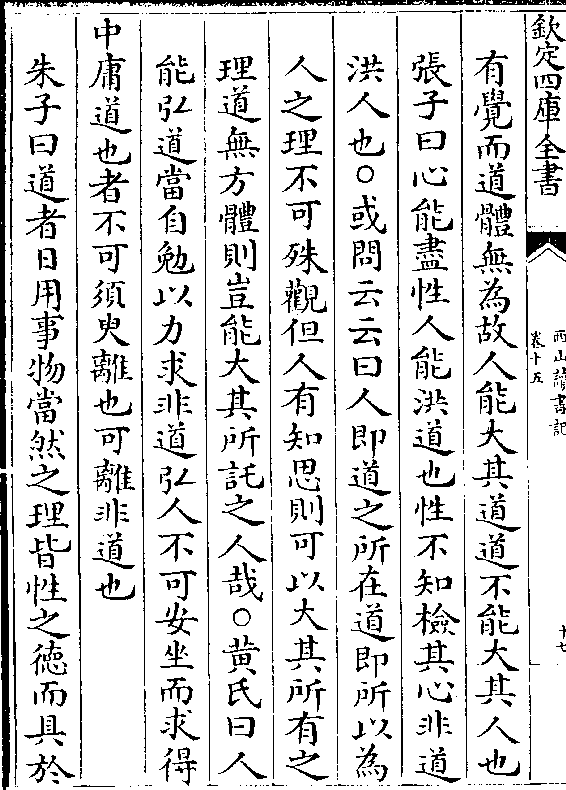 欽定四庫全書
西山讀書記
卷十五
十七
有覺而道體無為故人能大其道道不能大其人也
張子曰心能盡性人能洪道也性不知檢其心非道
洪人也○或問云云曰人即道之所在道即所以為
人之理不可殊觀但人有知思則可以大其所有之
理道無方體則豈能大其所託之人哉○黄氏曰人
能弘道當自勉以力求非道弘人不可安坐而求得
中庸道也者不可須臾離也可離非道也
朱子曰道者日用事物當然之理皆性之徳而具於